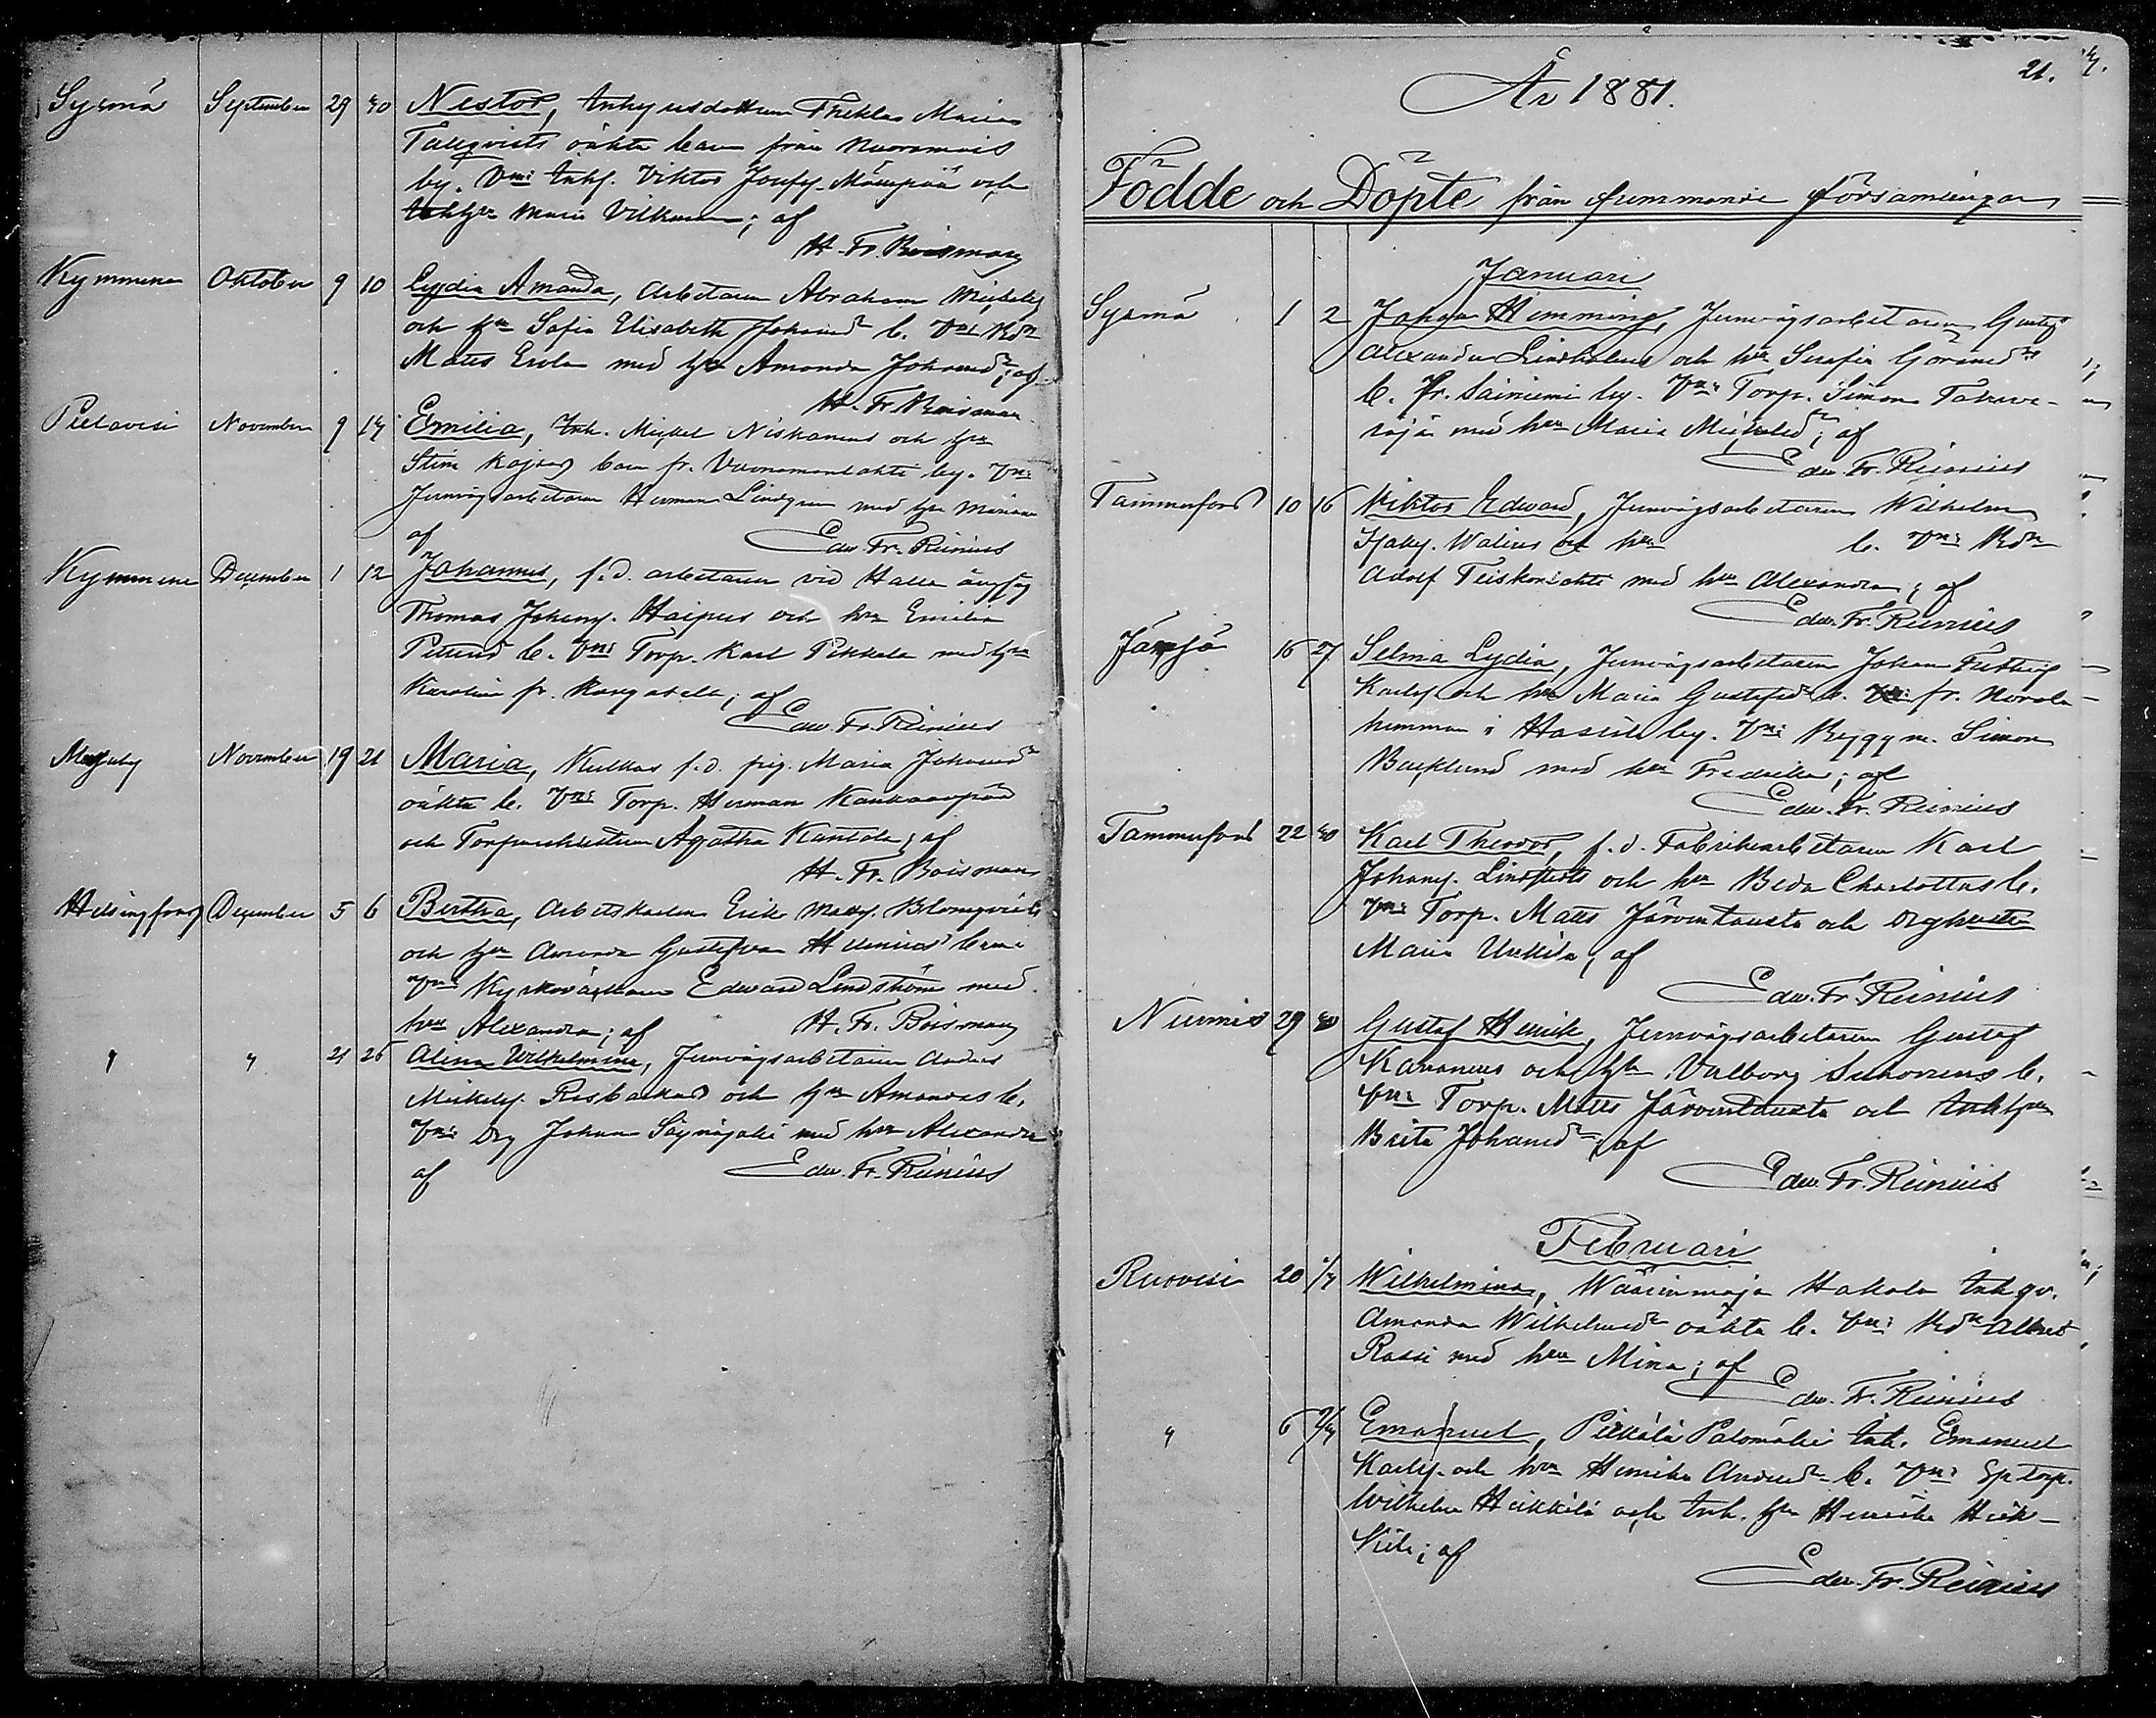 Sysmä September 29 30 Nestor, Inhysesdottren Theklas Maria
Tallqvists oäkta barn från Nuoramois
by. Vne: Inh. Viktor Josefs. Mäenpää och
Inh. hu Maria Vilkman; af
H. Fr. Boisman
Kymmene Oktober 9 10 Lydia Amanda, Arbetaren Abraham Michels.
och hu Sofia Elisabeth Johansd b. Vne: Bdn
Matts Erola med hu Amanda Johansdr; af
H. Fr. Boisman
Pielavesi November 9 14 Emilia, Inh. Mickel Niskanens och hu
Stina barn fr. by. Vne:
Jernvägsarbetaren Herman Lindgren med hu
af Edw. Fr. Reinius
Kymmene December 1 12 Johannes, f.d. arbetaren vid Halla ångsåg
Thomas Johans. Haipus och hu Emilia
Petersd b. Vne: Torp. Karl Pekkala med hu
Karolina fr. Kangas; af
Edw. Fr. Reinius
November 19 21 Maria, f.d. pig. Maria Johansd
oäkta b. Vne: Torp. Herman Kankaanpää
och Torparehustrun Agatha Kantola; af
H. Fr. Boisman
Helsingfors December 5 6 Bertha, Arbetskarlen Erik Matts. Blomqvists
och hu Amanda Gustafva Helenius' barn
Vne: Kyrkoväktaren Edward Lindström med
hu Alexandra; af H. Fr. Boisman
" " 21 26 Alina Wilhelmina, Jernvägsarbetaren Anders
Mickels. Risbackas och hu Amandas b.
Vne: Drg Johan Säynäjoki med hu Alexandra
af Edw. Fr. Reinius
21.
År 1881.
Födde och Döpte från främmande församlingar
Januari
Sysmä 1 2 Johan Hemming, Jernvägsarbetaren Gustaf
Alexander Lindholms och hu Serafia Göransdrs
b. fr. Sainiemi by. Vne: Torp. Simon
med hu Maria Mickelsdr; af
Edw. Fr. Reinius
Tammerfors 10 16 Viktor Edward, Jernvägsarbetaren Wilhelm
Isaks. Walius och hu b. Vne: Bdn
Adolf Teiskonlahti med hu Alexandra; af
Edw. Fr. Reinius
16 27 Selma Lydia, Jernvägsarbetaren Johan Frithiof
Karls. och hu Maria Gustafsdr b. fr.
hemman i by. Vne: Byggm. Simon
Backlund med hu Fredrika; af
Edw. Fr. Reinius
Tammerfors 22 30 Karl Theodor, f.d. Fabriksarbetaren Karl
Johans. Lindstedts och hu Beda Charlottas b.
Vne: Torp. Matts Järventausta och Drghustru
Maria Uskila, af
Edw. Fr. Reinius
Nurmis 29 30 Gustaf Henrik, Jernvägsarbetaren Gustaf
Karvonens och hu Valborg Sihvonens b.
Vne: Torp. Matts Järventausta och Inh hu
Brita Johansdr; af
Edw. Fr. Reinius
Februari
Ruovesi 20 Wilhelmina, Wäärinmaja Hakala Inh qv.
Amanda Wilhelmsdr oäkta b. Vne: Bdn Alfred
Rossi med hu Mina; af
Edw. Fr. Reinius
" 6 Emanuel, Pihkala Palomäki Inh. Emanuel
Karls. och hu Henrika Andersdr b. Vne: Sp torp.
Wilhelm Heikkilä och Inh. hu Henrika Heik-
kilä; af
Edw. Fr. Reinius